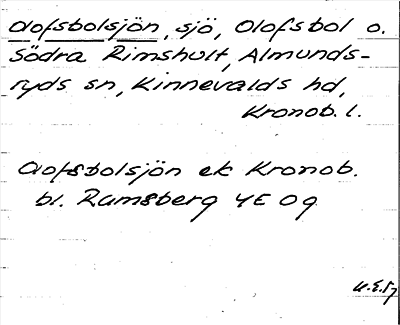 Olofsbolsjön, sjö, Olofsbol o.
Södra Rimshult, Almunds-
ryds sn, Kinnevalds hd,
Kronob. l.
Olofsbolsjön ek Kronob.
bl. Ramsberg 4E 0g